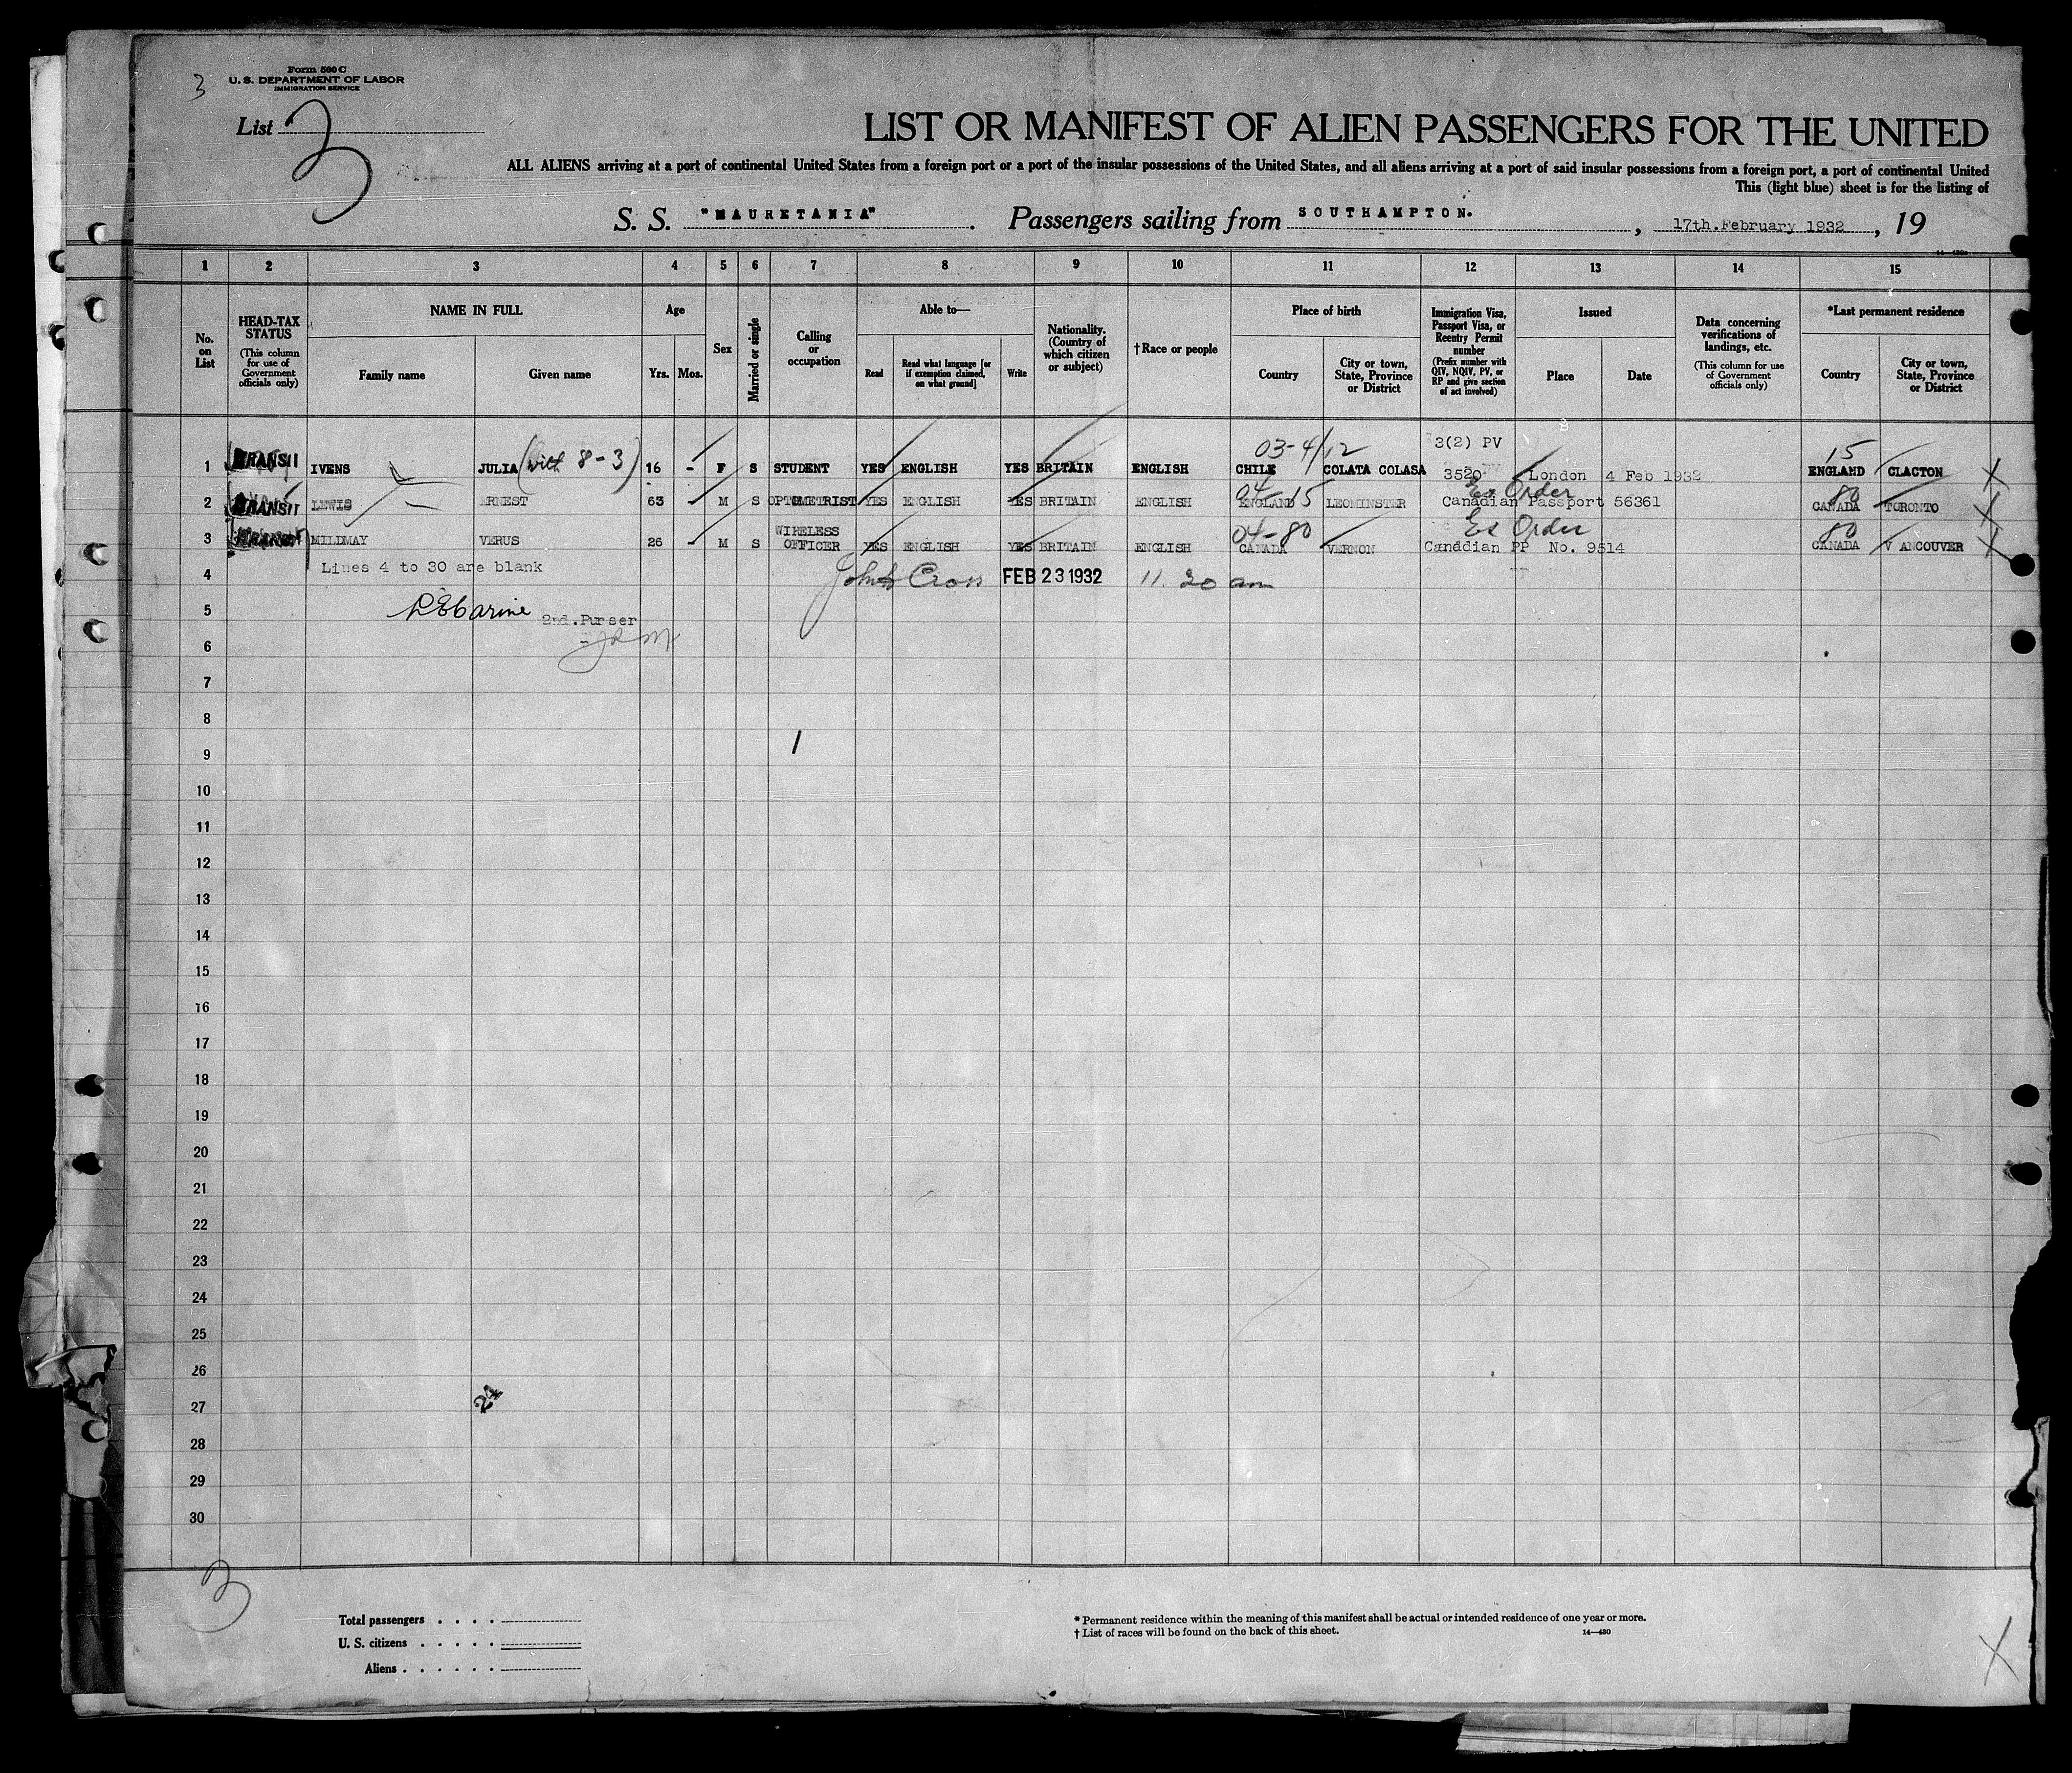 3
Form 500 C
U. S. DEPARTMENT OF LABOR
IMMIGRATION SERVICE
List 3
LIST OR MANIFEST OF ALIEN PASSENGERS FOR THE UNITED
ALL ALIENS arriving at a port of continental United States from a foreign port or a port of the insular possessions of the United States, and all aliens arriving at a port of said insular possessions from a foreign port, a port of continental United
This (light blue) sheet is for the listing of
S. S. "MAURETANIA". Passengers sailing from SOUTHAMPTON. , 17th.February 1932 , 19
14—430
1 2 3 4 5 6 7 8 9 10 11 12 13 14 15
No. on List
HEAD-TAX STATUS
(This column for use of Government officials only)
NAME IN FULL
Family name
Given name
Age
Yrs. Mos.
Sex
Married or single
Calling or occupation
Able to—
Read
Read what language [or if exemption claimed, on what ground]
Write
Nationality. (Country of which citizen or subject)
†Race or people
Place of birth
Country
City or town, State, Province or District
Immigration Visa, Passport Visa, or Reentry Permit number
(Prefix number with QIV, NQIV, PV, or RP and give section of act involved)
Issued
Place
Date
Data concerning verifications of landings, etc.
(This column for use of Government officials only)
*Last permanent residence
Country
City or town, State, Province or District
03-4/12 3(2) PV 15
1 TRANSIT IVENS JULIA (with 8-3) 16 - F S STUDENT YES ENGLISH YES BRITAIN ENGLISH CHILE COLATA COLASA 3520 London 4 Feb 1932 ENGLAND CLACTON X
04-15 Ex Order 80
2 TRANSIT LEWIS ERNEST 63 - M S OPTOMETRIST YES ENGLISH YES BRITAIN ENGLISH ENGLAND LEOMINSTER Canadian Passport 56361 CANADA TORONTO X
04-80 Ex Order 80
3 MILDMAY VERUS 26 - M S WIRELESS OFFICER YES ENGLISH YES BRITAIN ENGLISH CANADA VERNON Canddian PP No. 9514 CANADA V ANCOUVER X
Lines 4 to 30 are blank
4 Cross FEB 23 1932 11.20 am
5 2nd.Purser
6
7
8
9
10
11
12
13
14
15
16
17
18
19
20
21
22
23
24
25
26
27
24
28
29
30
3
Total passengers . . . .
U. S. citizens . . . . .
Aliens . . . . . .
* Permanent residence within the meaning of this manifest shall be actual or intended residence of one year or more.
† List of races will be found on the back of this sheet.
14—430
X